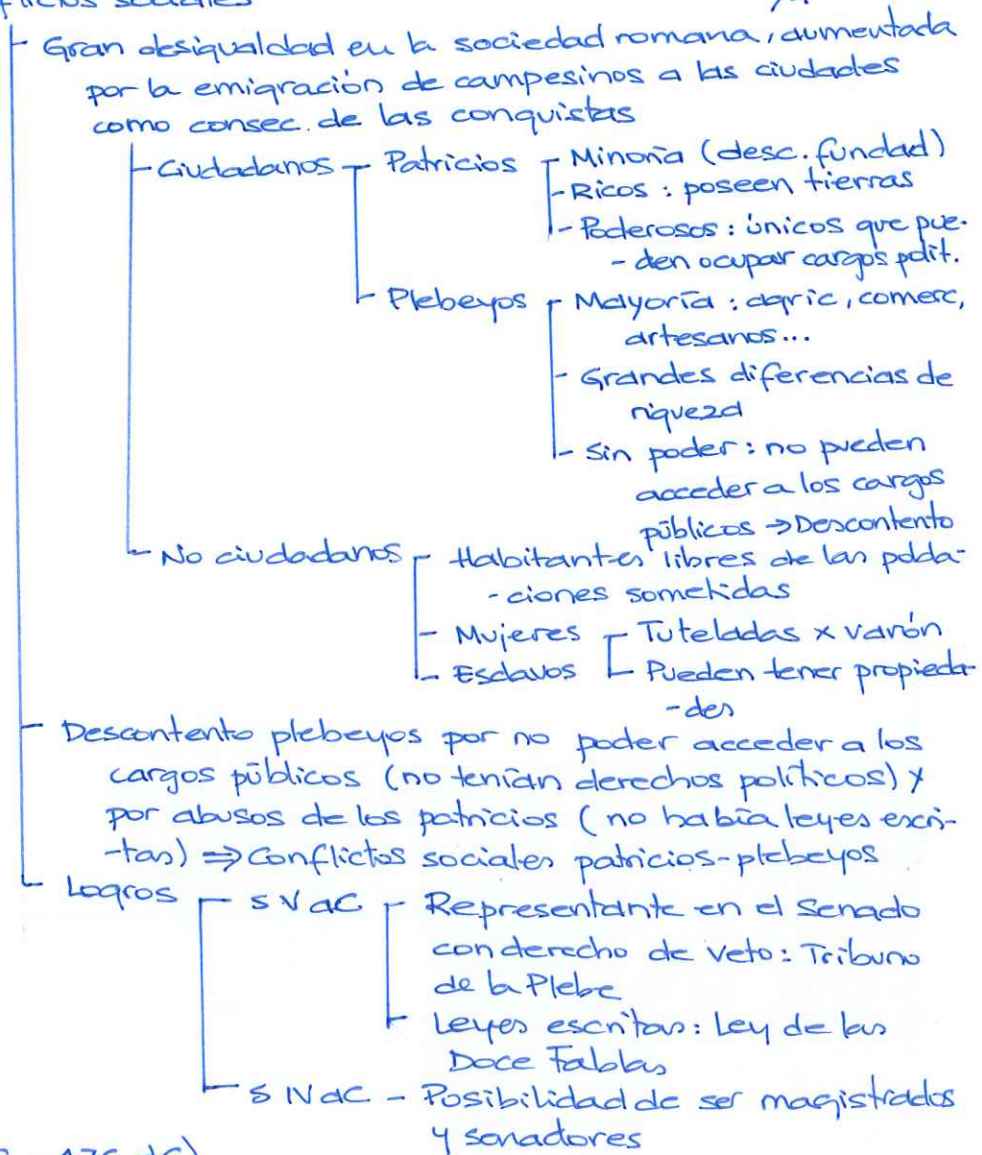 sociales
Gran desigualdad en la sociedad romana, aumentada
por la emigración de campesinos a las ciudades
como consec. de las conquistas
- Ciudadanos - Patricios - Minoría (desc. fundad)
- Ricos : poseen tierras
- Poderosos : únicos que pue-
- den ocupar cargos polít.
- Plebeyos - Mayoría : agric, comerc,
artesanos...
- Grandes diferencias de
riqueza
- Sin poder : no pueden
acceder a los cargos
públicos → Descontento
- No ciudadanos - Habitantes libres de las pobla-
- ciones sometidas
- Mujeres - Tuteladas x varón
- Esclavos - Pueden tener propieda-
- des
- Descontento plebeyos por no poder acceder a los
cargos públicos (no tenían derechos políticos) y
por abusos de los patricios (no había leyes escri-
-tas) ⇒ Conflictos sociales patricios-plebeyos
- Logros - s V aC - Representante en el Senado
con derecho de veto : Tribuno
de la Plebe
- Leyes escritas : Ley de las
Doce Tablas
- s IV aC - Posibilidad de ser magistrados
y senadores